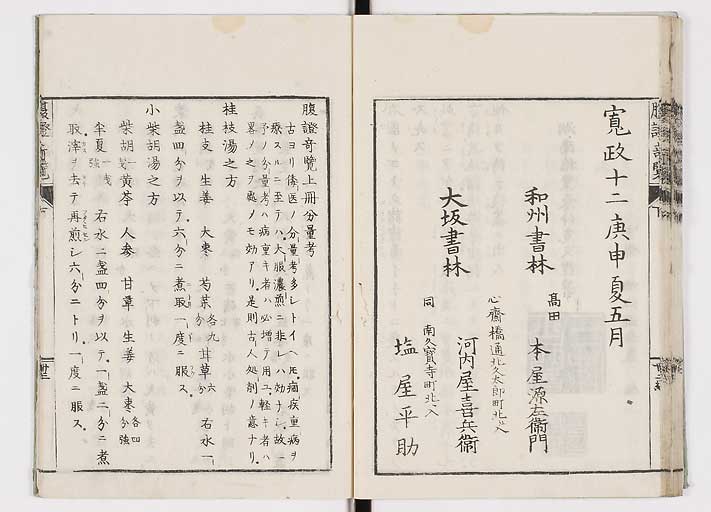 寛政十二庚申夏五月
和州書林
髙田
本屋源左衞門
大坂書林
心齋橋通北久太郎町北ヘ入
河内屋喜兵衞
同
南久寳寺町北ヘ入
塩屋平助
腹證奇覽上冊分量考
古ヨリ傳医ノ分量考多シトイヘ𪜈痼疾重病ヲ
療スルニ至テハ大服濃煎ニ非レハ効ナシ故ニ
予ノ分量考ハ病重キ者ハ必増テ用ユ軽キ者ハ
畧ノ之ヲ處ノモ効アリ是則古人処劑ノ意ナリ
桂枝湯之方
桂支 生姜 大棗 芍薬各九分 甘草六分 右水一
盏四分ヲ以テ六分ニ煮取一度ニ服ス
小柴胡湯之方
柴胡 黄芩 人参 甘草 生姜 大棗各四分強
半夏 右水二盏四分ヲ以テ一盏二分ニ煮
取滓ヲ去テ再煎シ六分ニトリ一度ニ服ス